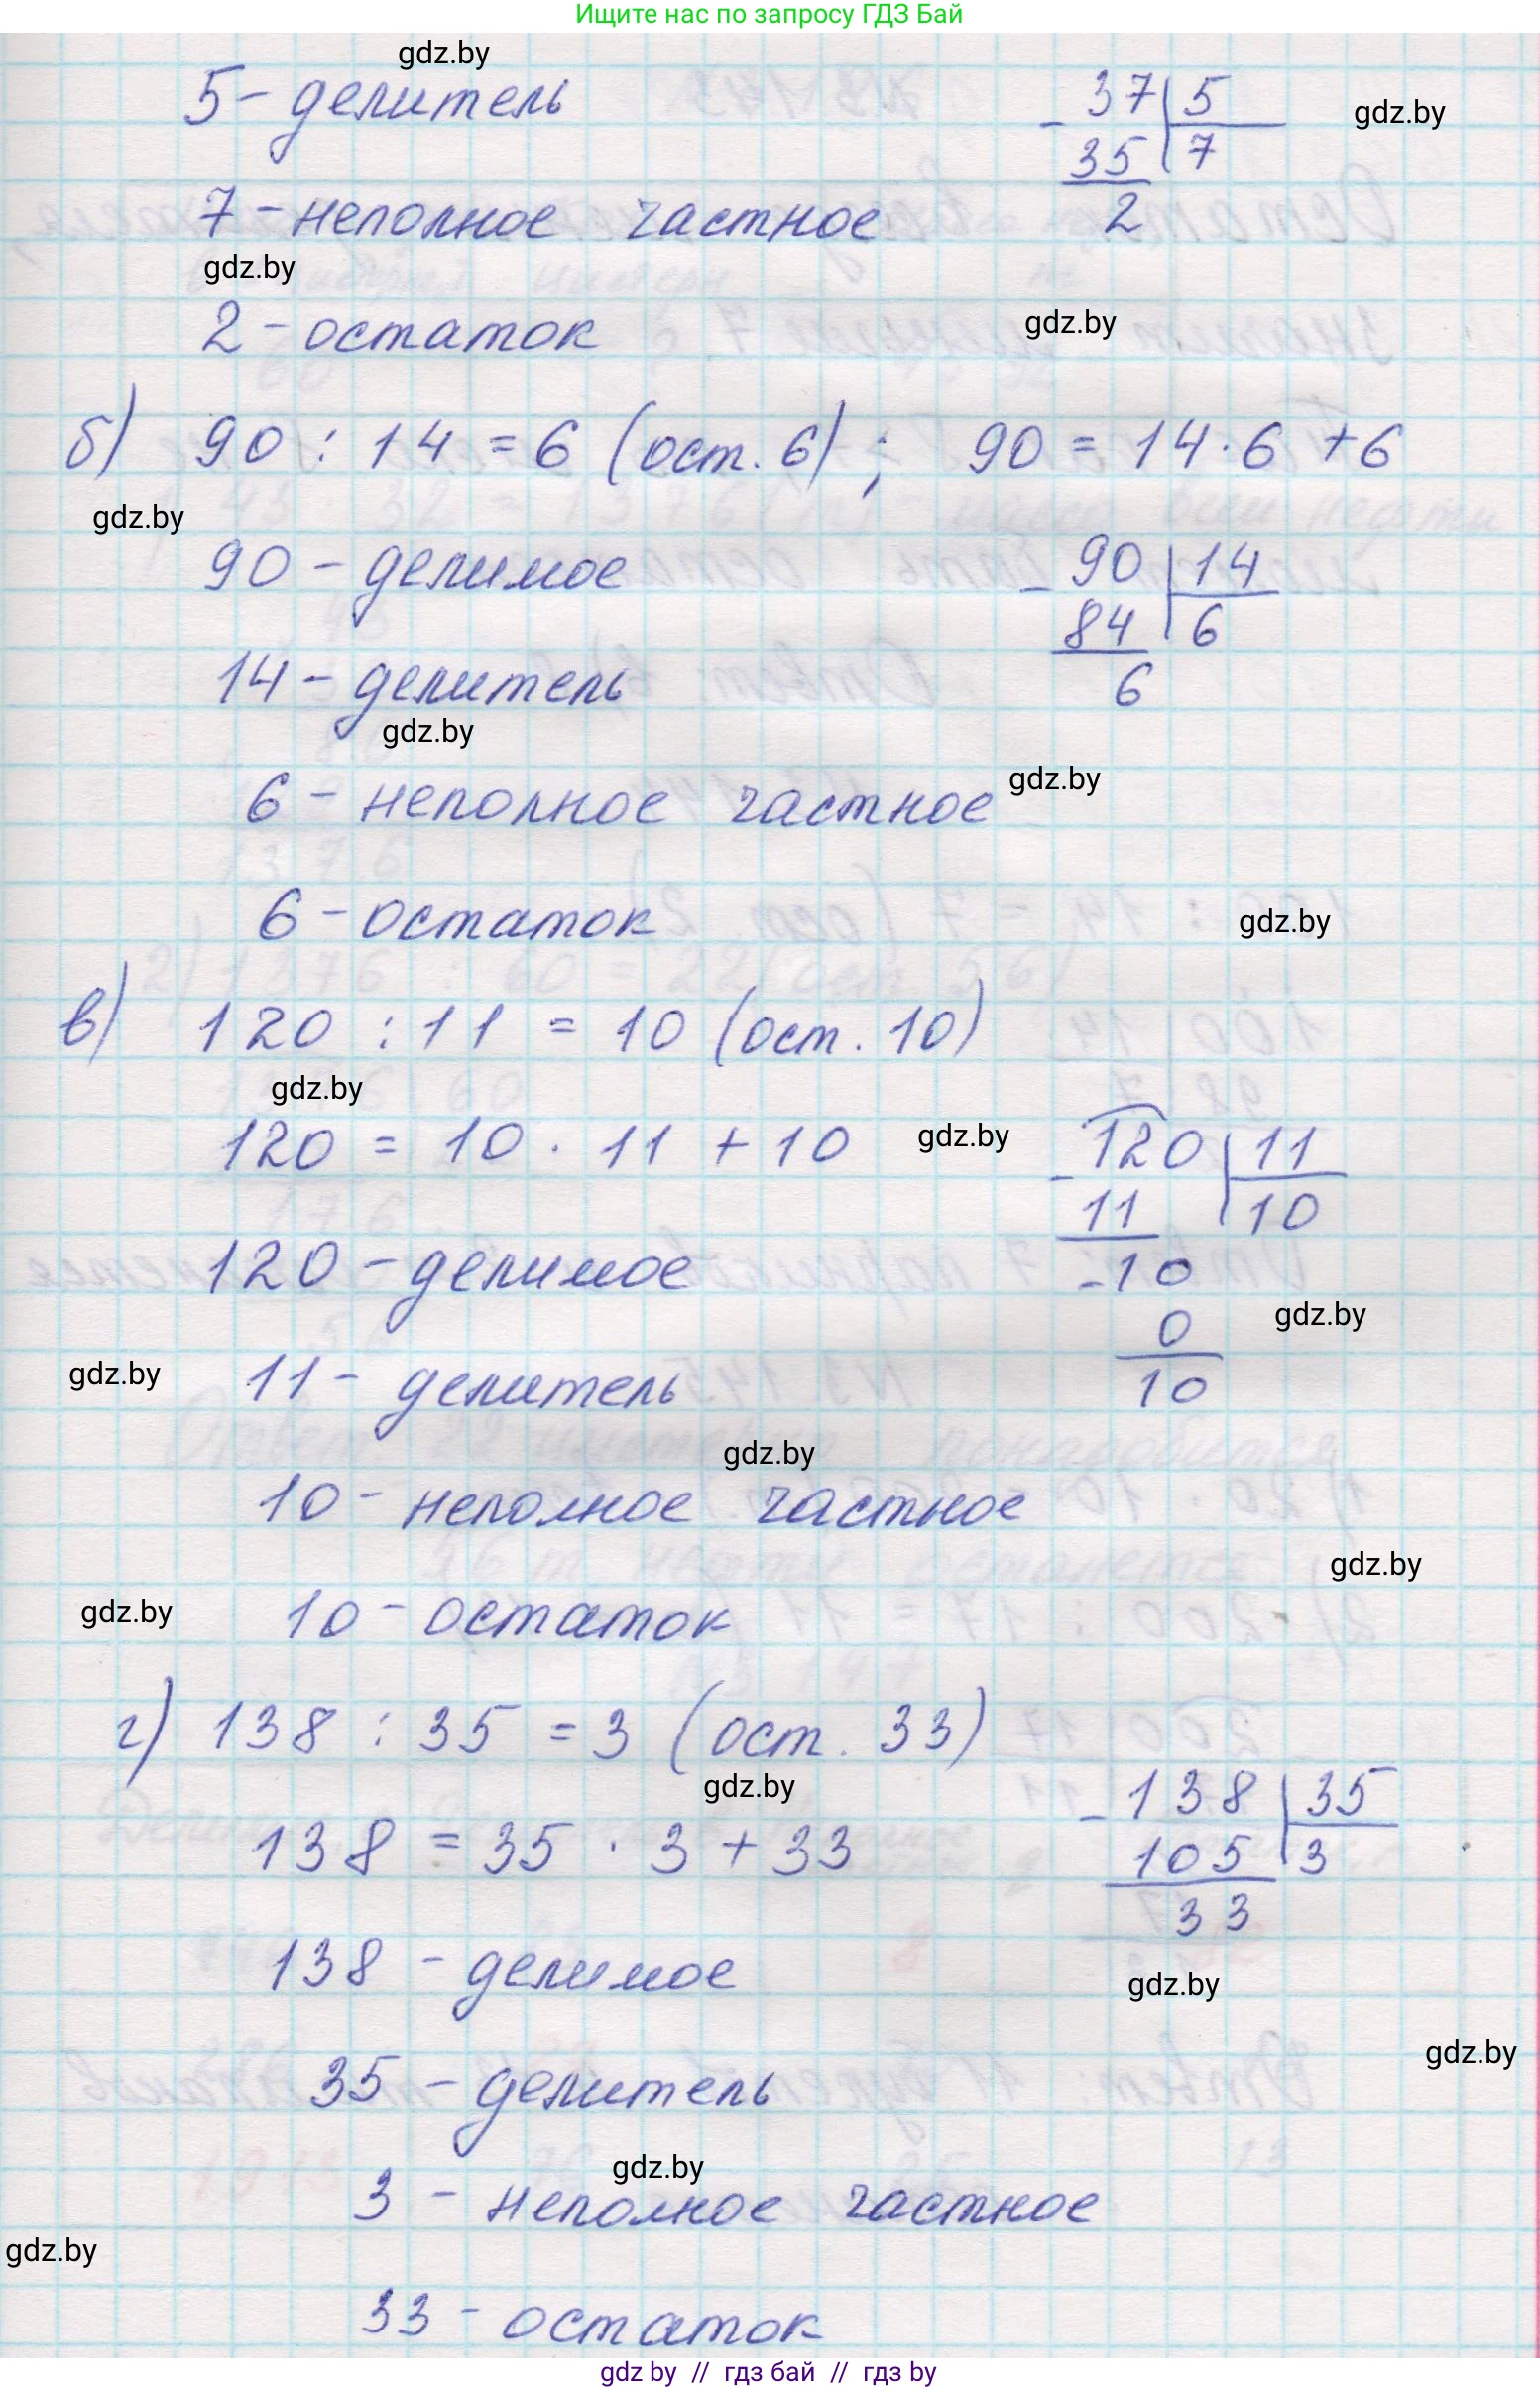 Ищите нас по запросу ГДЗ Бай
gdz.by
5 - делитель
37 5
gdz.by
- 35 7
2
7 - неполное частное
gdz.by
2 - остаток
gdz.by
б) 90 : 14 = 6 (ост. 6) ; 90 = 14 · 6 + 6
gdz.by
90 - делимое
- 90 14
84 6
6
14 - делитель
gdz.by
gdz.by
6 - неполное частное
6 - остаток
gdz.by
в) 120 : 11 = 10 (ост. 10)
gdz.by
120 = 10 · 11 + 10
gdz.by
- 120 11
11 10
- 10
0
10
120 - делимое
gdz.by
gdz.by
11 - делитель
gdz.by
10 - неполное частное
gdz.by
gdz.by
10 - остаток
г) 138 : 35 = 3 (ост. 33)
gdz.by
- 138 35
105 3
33
138 = 35 · 3 + 33
138 - делимое
gdz.by
gdz.by
35 - делитель
gdz.by
3 - неполное частное
gdz.by
33 - остаток
gdz by // гдз бай // гдз by